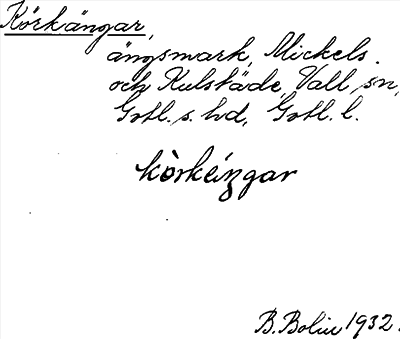 Körkängar,
ängsmark, Mickels.
och Kulstäde, Vall sn,
Gotl. s. hd, Gotl. l.
kòrkéi̯ŋgar
B. Bolin 1932.